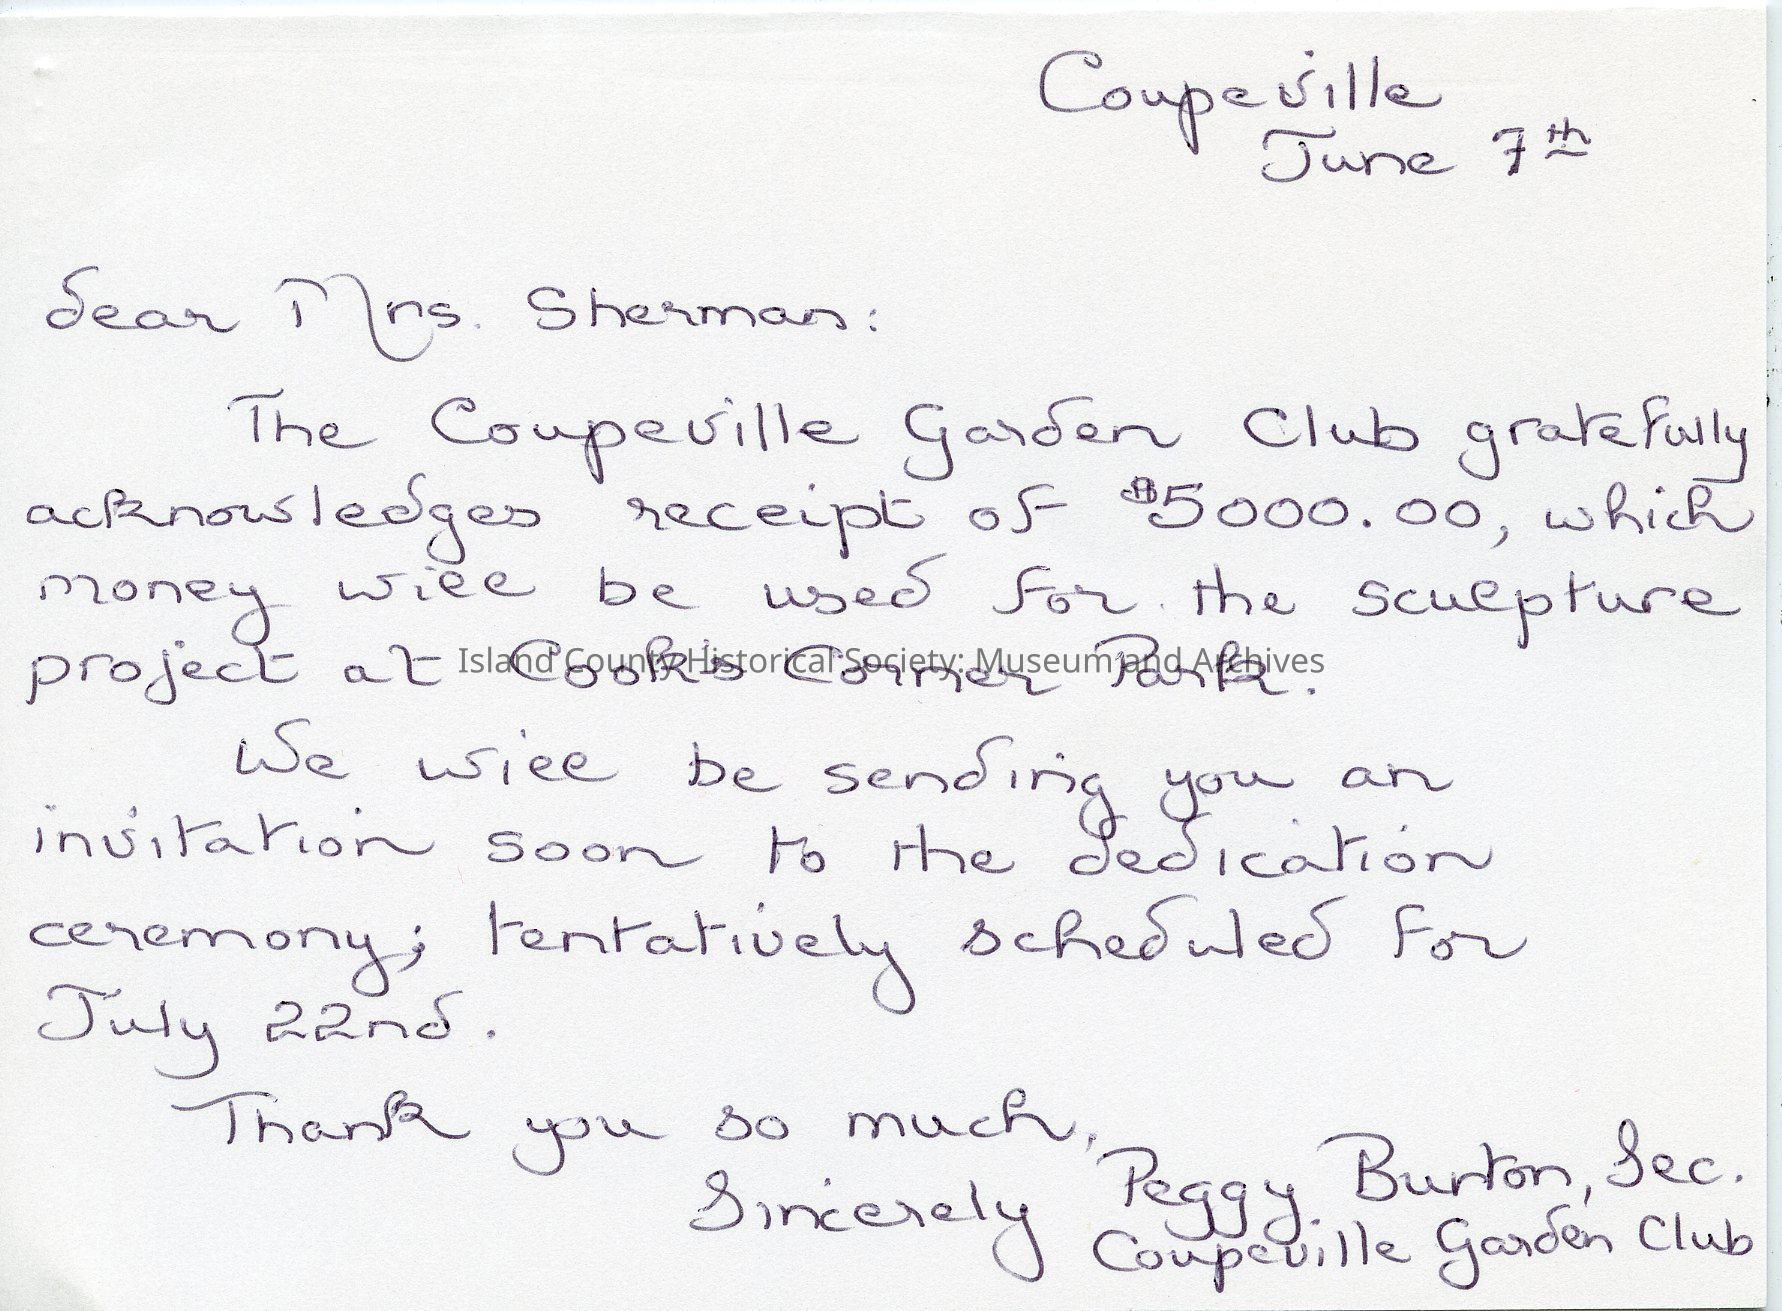 Coupeville
June 7th
dear Mrs. Sherman:
The Coupeville Garden Club gratefully
acknowledges receipt of $5000.00, which
money will be used for the sculpture
project at Cook's Corner Park.
Island County Historical Society: Museum and Archives
We will be sending you an
invitation soon to the dedication
ceremony; tentatively scheduled for
July 22nd.
Thank you so much,
Sincerely Peggy Burton, Sec.
Coupeville Garden Club